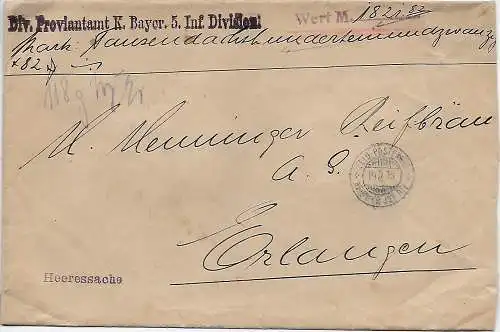 Div. Proviantamt K. Bayer. 5. Inf. Division!
Wert M. 1821.82
Mark: Tausendachthunderteinundzwanzig
+ 82 in
118 g
M. Henninger Reifbräu
A. G.
Erlangen
FELD-POST
Heeressache